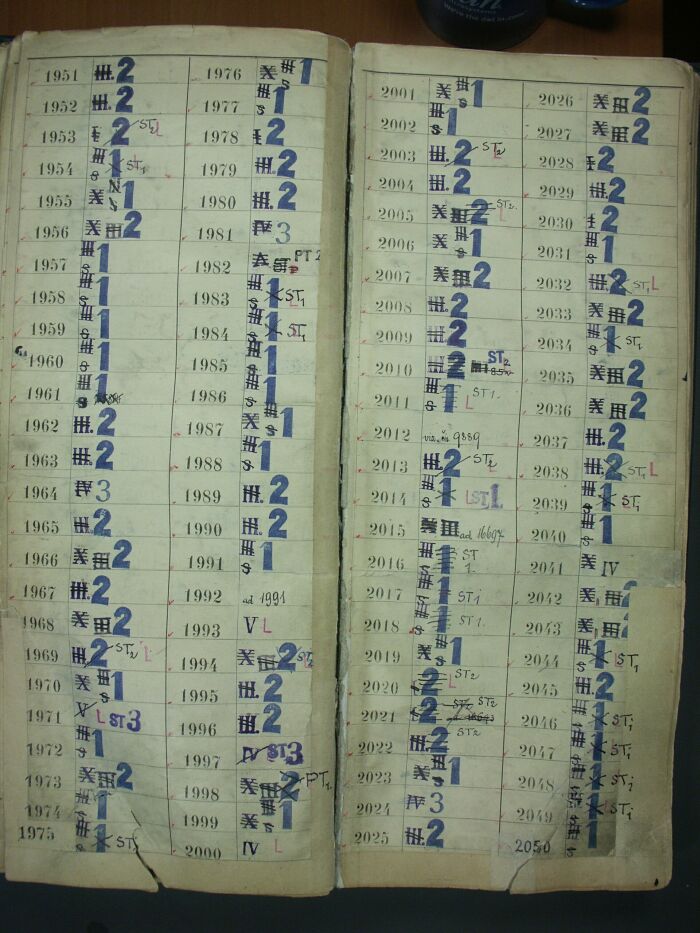 1951 III. 2
1952 III. 2
1953 I 2 ST2 L
1954 III s 1 ST1
1955 X s 1
1956 X III 2
1957 III s 1
1958 III s 1
1959 III s 1
1960 III s 1
1961 III s 1
1962 III. 2
1963 III. 2
1964 IV 3
1965 III. 2
1966 X III 2
1967 III. 2
1968 X III 2
1969 III. 2 ST2 L
1970 X III s 1
1971 V L ST3
1972 III s 1
1973 X III 2
1974 III s 1
1975 III s 1 ST1
1976 X III s 1
1977 III s 1
1978 I 2
1979 III. 2
1980 III. 2
1981 IV 3
1982 X PT 2
1983 III s 1 ST1 L
1984 III s 1 ST1 L
1985 III s 1
1986 III s 1
1987 X III s 1
1988 III s 1
1989 III. 2
1990 III. 2
1991 III s 1
1992 ad 1991
1993 V L
1994 X III 2 ST2 L
1995 III. 2
1996 III. 2
1997 IV ST3
1998 X III 2 PT1
1999 X III s 1
2000 IV L
2001 X III s 1
2002 III s 1
2003 III. 2 ST2 L
2004 III. 2
2005 X III 2 ST2. L
2006 X III s 1
2007 X III 2
2008 III. 2
2009 III. 2
2010 III. 2 ST2
2011 III s 1 ST1. L
2012 viz. č. 9889
2013 III. 2 ST2 L
2014 III s 1 L ST 1.
2015 X III ad 16697
2016 III s 1 ST 1.
2017 III s 1 ST1
2018 III s 1 ST1.
2019 X III s 1
2020 I 2 ST2 L
2021 I 2 ST2 ST2
2022 III. 2 ST2
2023 X III s 1
2024 IV 3
2025 III. 2
2026 X III 2
2027 X III 2
2028 I 2
2029 III. 2
2030 I 2
2031 III s 1
2032 III. 2 ST1 L
2033 X III 2
2034 III s 1 ST1
2035 X III 2
2036 X III 2
2037 III. 2
2038 III. 2 ST1 L
2039 III s 1 ST1
2040 III s 1
2041 X IV
2042 X III 2
2043 X III 2
2044 III s 1 ST1 L
2045 III. 2
2046 III s 1 ST1
2047 III s 1 ST1
2048 III s 1 ST1
2049 III s 1 ST1
2050 III s 1